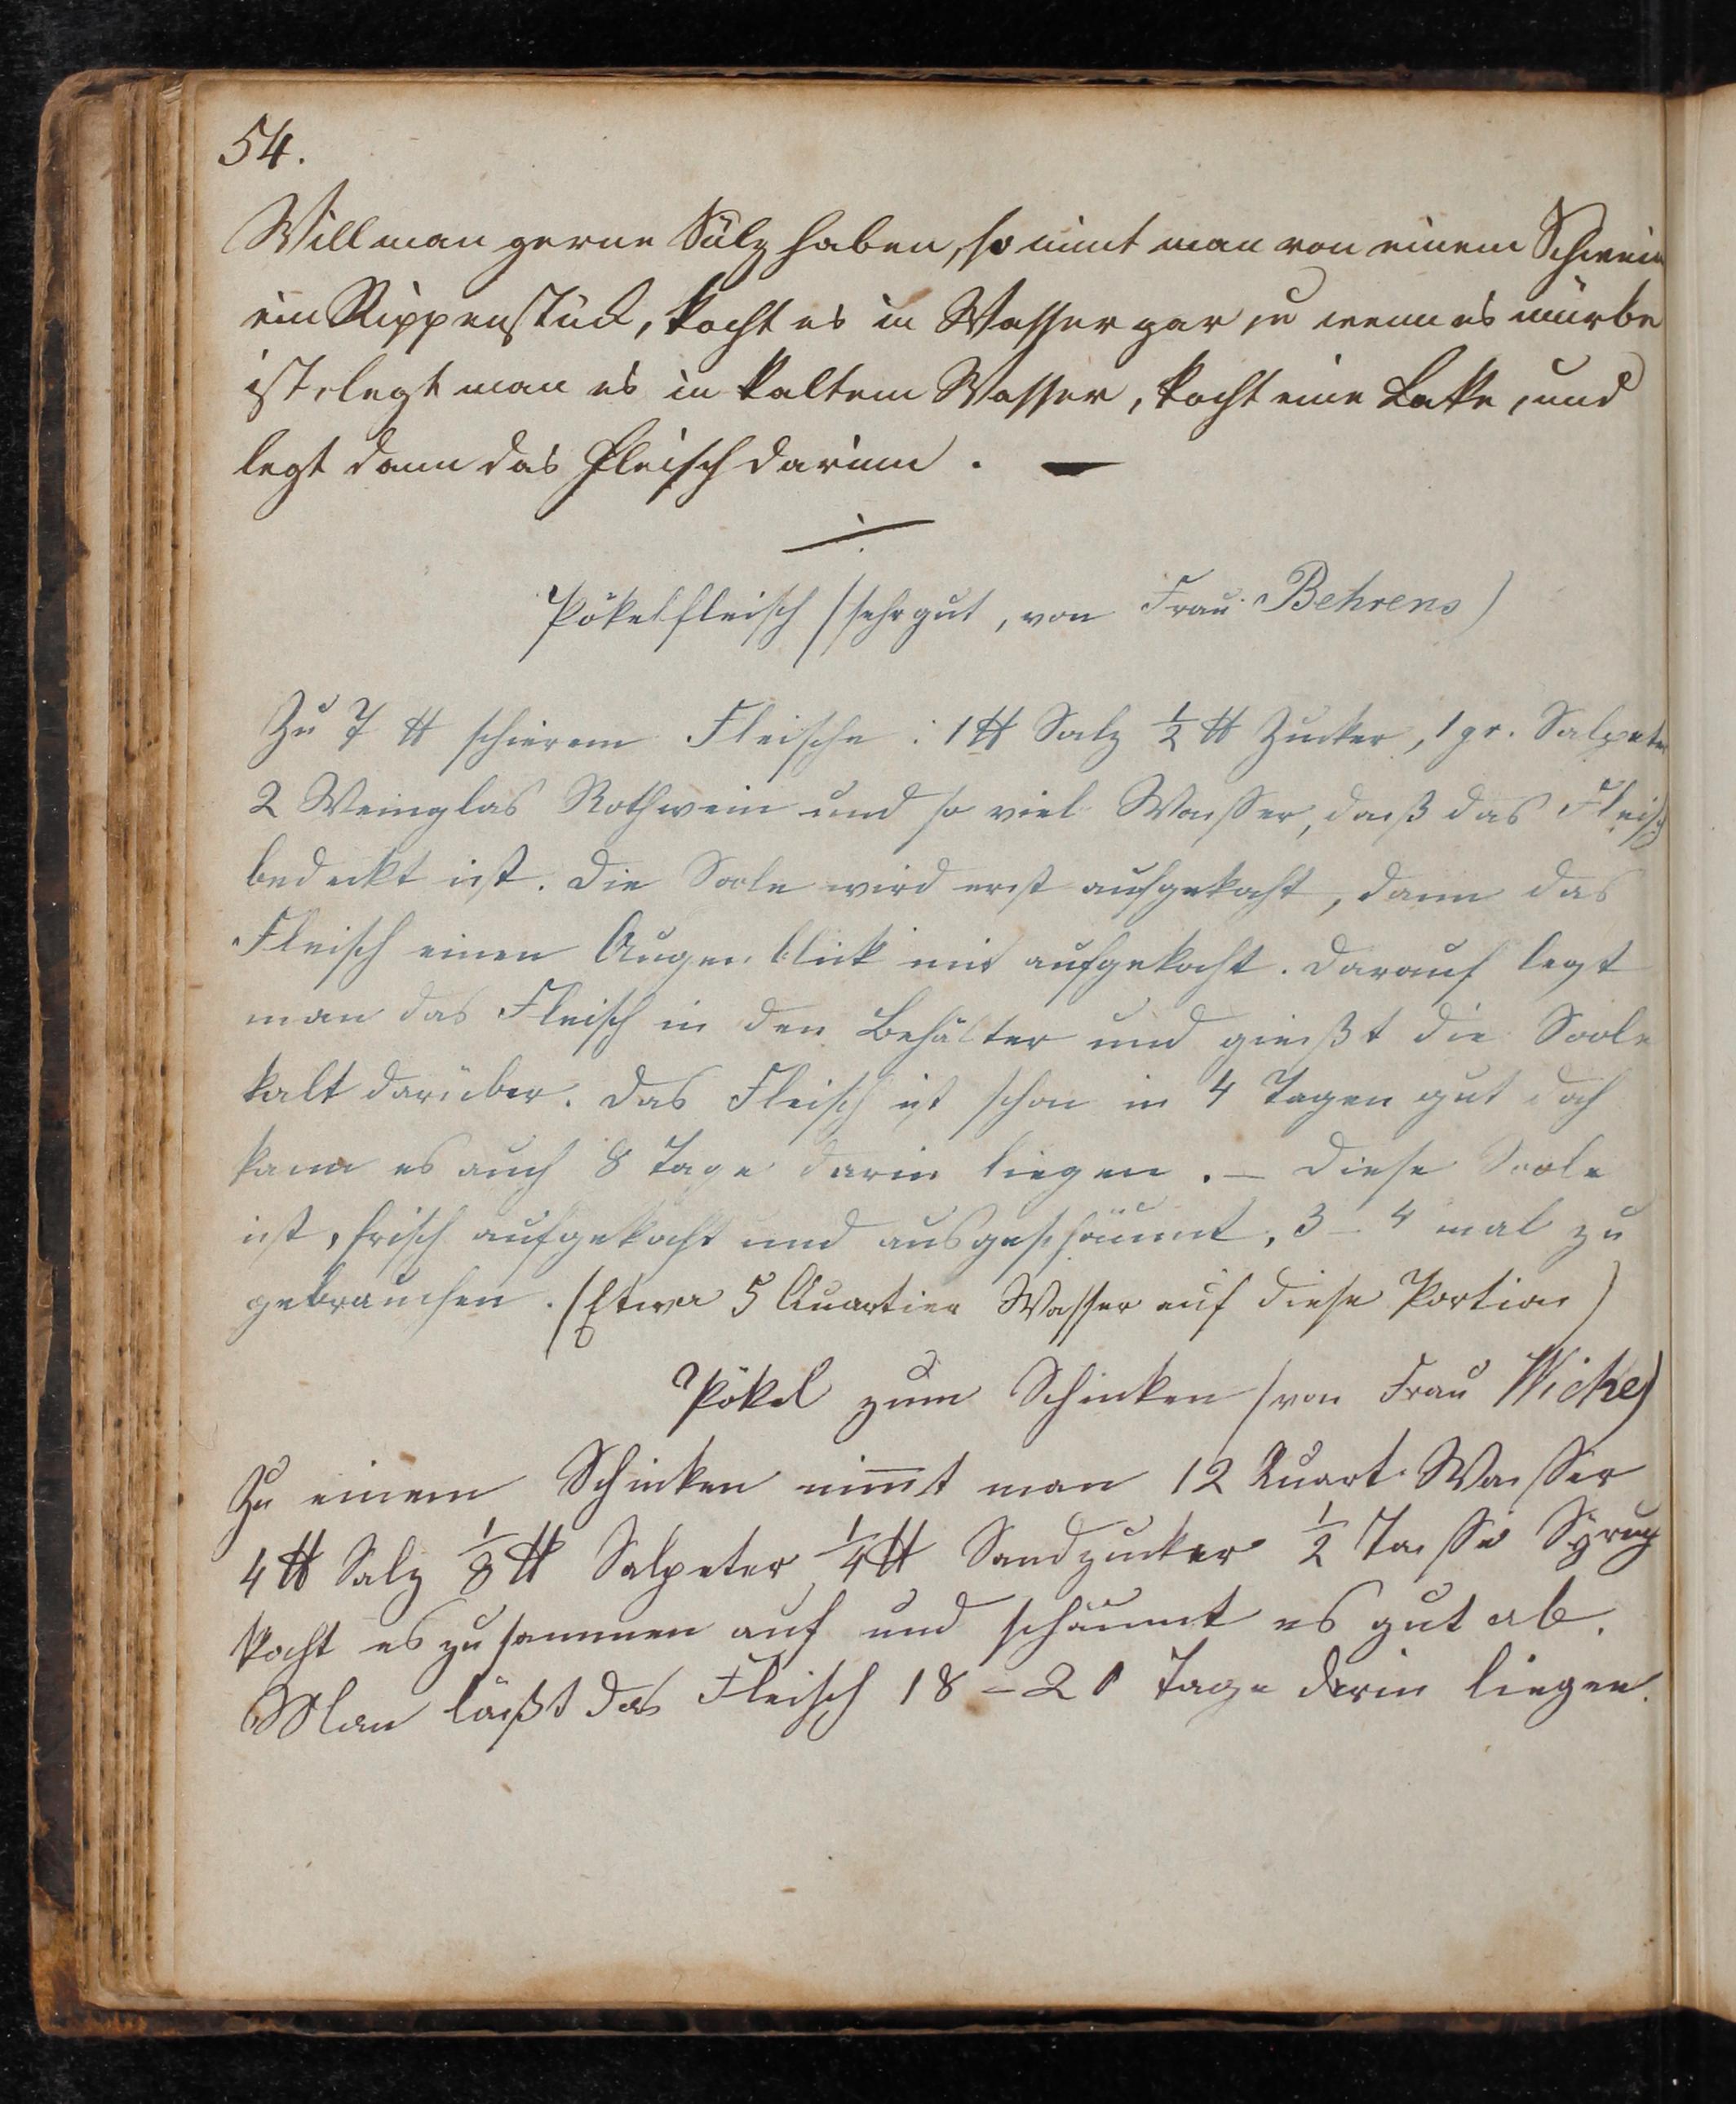 54.
Will man gerne Sülz haben, so nimt man von einem Schwein
ein Rippenstück, kocht es in Wasser gar, u wenn es mürbe
ist, legt man es in kaltem Wasser, kocht eine Lake, und
legt dann das Fleisch darinn. —
Pökelfleisch (sehr gut, von Frau Behrens)
Zu 7 ℔ schierem Fleische : 1 ℔ Salz ½ ℔ Zucker, 1 gr. Salpeter
2 Weinglas Rothwein und so viel Wasser, daß das Fleisch
bedeckt ist. Die Soole wird erst aufgekocht, dann das
Fleisch einen Augenblick mit aufgekocht. Darauf legt
man das Fleisch in den Behälter und gießt die Soole
kalt darüber. Das Fleisch ist schon in 4 Tagen gut doch
kann es auch 8 Tage darin liegen. — Diese Soole
ist, frisch aufgekocht und ausgeschäumt, 3 - 4 mal zu
gebrauchen. (Etwa 5 Quartier Wasser auf diese Portion)
Pökel zum Schinken (von Frau Wicke)
Zu einem Schinken nim̅t man 12 Quart Wasser
4 ℔ Salz ⅛ ℔ Salpeter, ¼ ℔ Sandzucker ½ Tasse Syrup
kocht es zusammen auf und schäumt es gut ab.
Man läßt das Fleisch 18 - 21 Tage darin liegen.